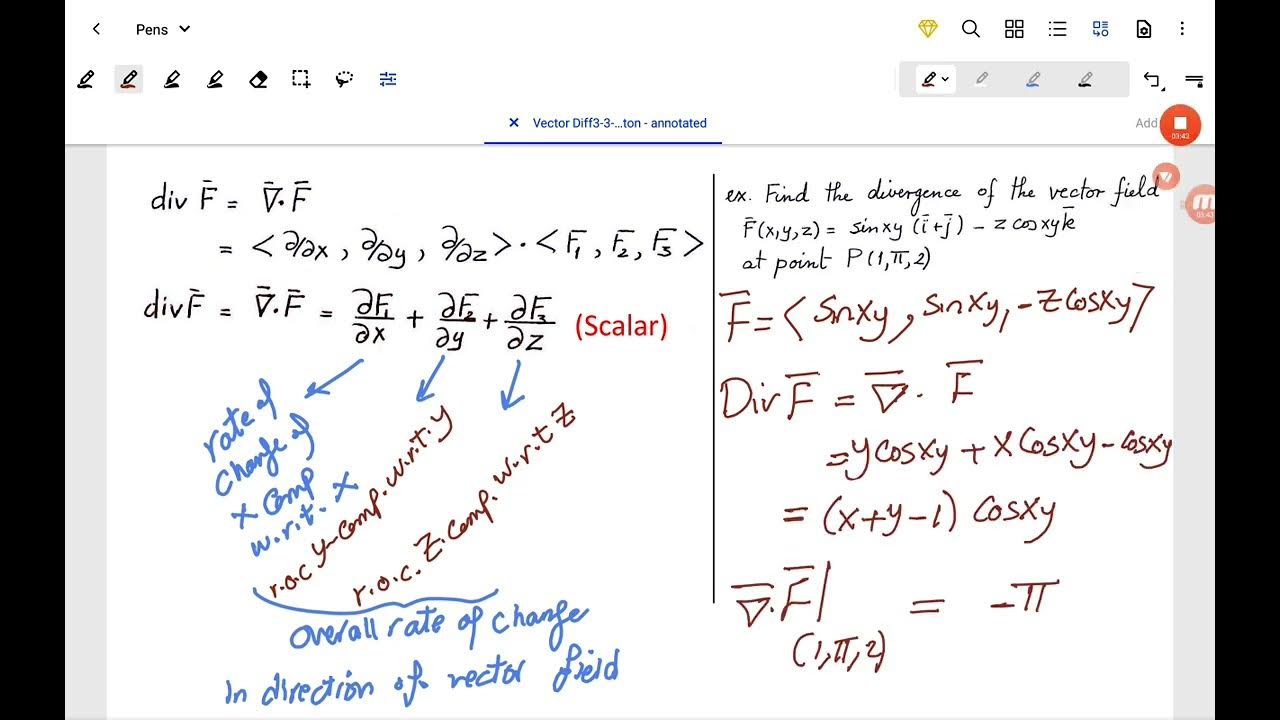 Pens
Vector Diff3-3-...ton - annotated
Add
03:43
03:43
div F̄ = ∇̄·F̄
= <∂/∂x, ∂/∂y, ∂/∂z>·<F̄₁, F̄₂, F̄₃>
div F̄ = ∇̄·F̄ = ∂F₁/∂x + ∂F₂/∂y + ∂F₃/∂z (Scalar)
rate of
change of
x comp
w.r.t. x
r.o.c y-comp. w.r.t. y
r.o.c. z. comp. w.r.t z
overall rate of change
in direction of vector field
ex. Find the divergence of the vector field
F̄(x,y,z) = sinxy (ī+j̄) - z cosxy k̄
at point P(1,π,2)
F̄ = <sinxy, sinxy, -zcosxy>
Div F̄ = ∇̄· F̄
= ycosxy + xcosxy - cosxy
= (x+y-1) cosxy
∇̄·F̄|(1,π,2) = -π